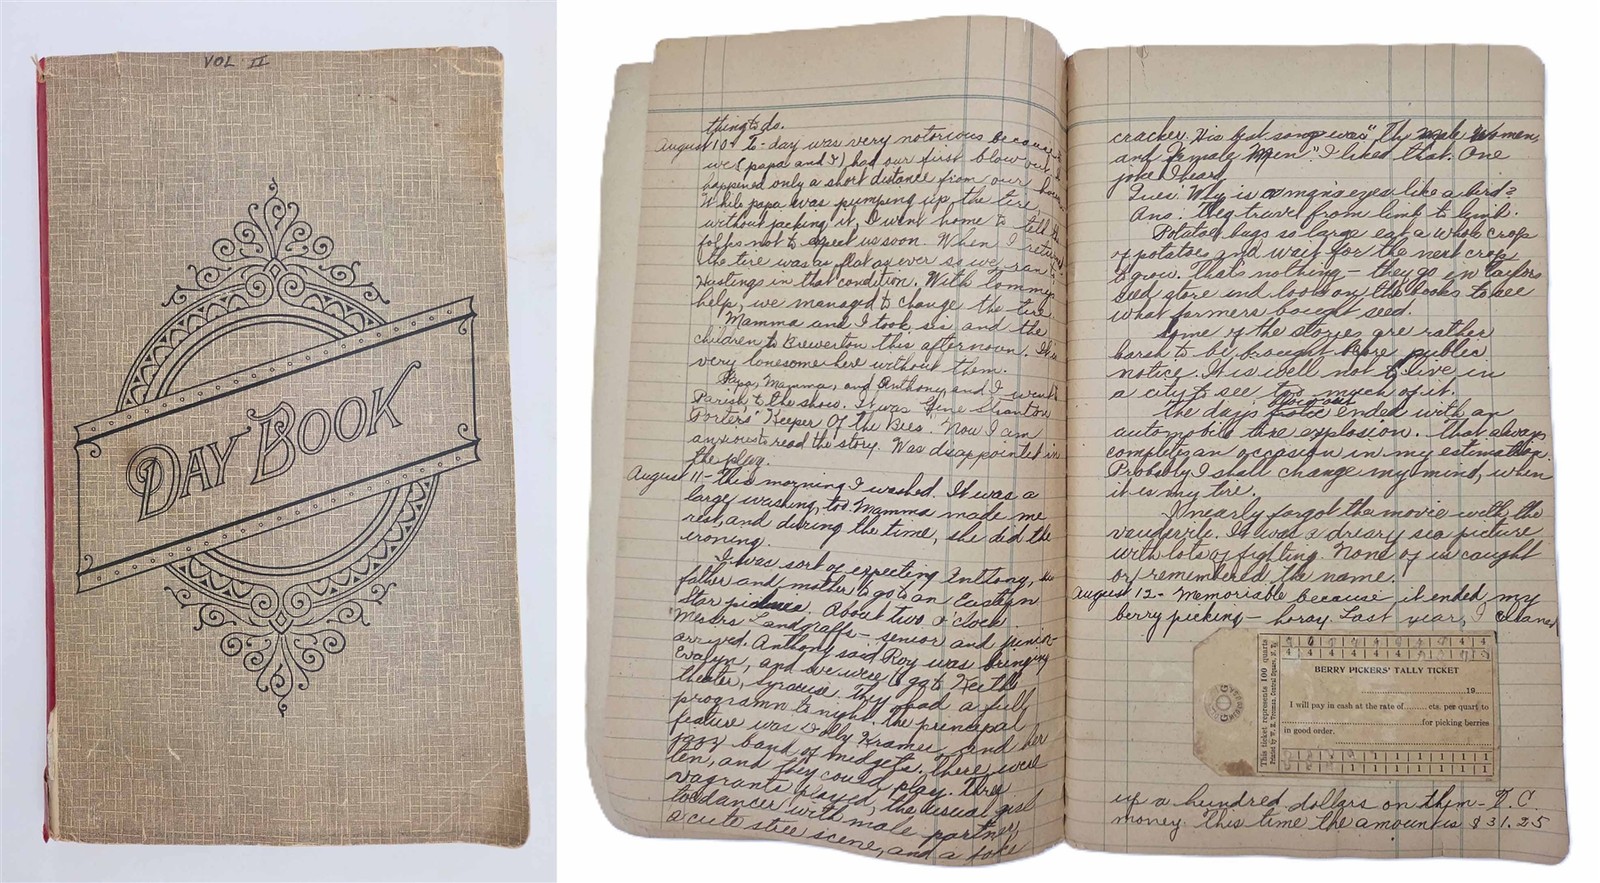 VOL II
DAY BOOK
things to do.
August 10- To-day was very notorious because
we (papa and I) had our first blow out
happened only a short distance from our
While papa was pumping up the tire,
without jacking it, I went home to tell the
folks not to expect us soon. When I
the tire was as flat as ever so we ran
Hastings in that condition. With Tommy
help, we managed to change the tire.
Mamma and I took sis and the
children to Brewerton this afternoon. It is
very lonesome here without them.
Papa, Mamma, and Anthony and I went
Parish to the show. It was Gene Stratton
Porter's "Keeper Of the Bees. Now I am
anxious to read the story. Was disappointed in
the play.
August 11- This morning I washed. It was a
large washing, too. Mamma made me
rest, and during the time, she did the
ironing.
I was sort of expecting Anthony, his
father and mother to go to an Eastern
Star picnic. About two o'clock
Messrs Landgraffs - senior and junior
arrived. Anthony said Roy was bringing
Evalyn, and we were to go to Keith
theater, Syracuse. They had a fully
programn to night. The principal
feature was Dolly Kramer and her
jazz band of midgets. There were
ten, and they could play. Three
vagrants played, the usual girl
to dance with male partner,
a cute street scene, and a
cracker. His first song was "The Male Women,
and Female Men." I liked that. One
joke I heard,
Ques: Why is a man's eyes like a bird?
Ans: They travel from limb to limb.
Potatoe bugs so large eat a whole crop
of potatoes and wait for the next crop
to grow. That's nothing - they go in Taylors
seed store and look on the books to see
what farmers bought seed.
Some of the stories are rather
harsh to be brought before public
notice. It is well not to live in
a city to see too much of it.
The days ended with an
automobile tire explosion. That always
completes an occasion in my estimation.
Probably I shall change my mind, when
it is my tire.
I nearly forgot the movie with the
vaudeville. It was a dreary sea picture
with lots of fighting. None of us caught
or remembered the name.
August 12- Memoriable because it ended my
berry picking - horay. Last year, I cleaned
This ticket represents 100 quarts
Printed by W. E. Truman, Central Square, N. Y.
4 4 4 4 4 4 4 4 4 4
BERRY PICKERS' TALLY TICKET
19
I will pay in cash at the rate of cts. per quart to
for picking berries
in good order.
1 1 1 1 1 1 1 1 1
up a hundred dollars on them - D. C.
money. This time the amount is $31.25